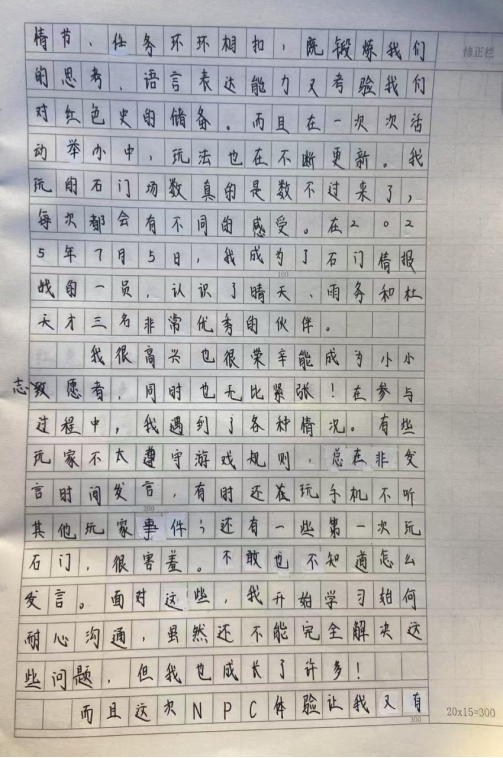 情节、任务环环相扣，既锻炼我们
修正栏
的思考、语言表达能力又考验我们
对红色史的储备。而且在一次次活
动举办中，玩法也在不断更新。我
玩的石门场数真的是数不过来了，
每次都会有不同的感受。在202
5年7月5日，我成为了石门情报
100
站的一员，认识了晴天、雨务和杜
天才三名非常优秀的伙伴。
我很高兴也很荣幸能成为小小
志愿者，同时也无比紧张！在参与
过程中，我遇到了各种情况。有些
玩家不太遵守游戏规则，总在非发
言时间发言，有时还在玩手机不听
200
其他玩家事件；还有一些第一次玩
石门，很害羞。不敢也不知道怎么
发言。面对这些，我开始学习如何
耐心沟通，虽然还不能完全解决这
些问题，但我也成长了许多！
而且这次NPC体验让我又有
300
20x15=300